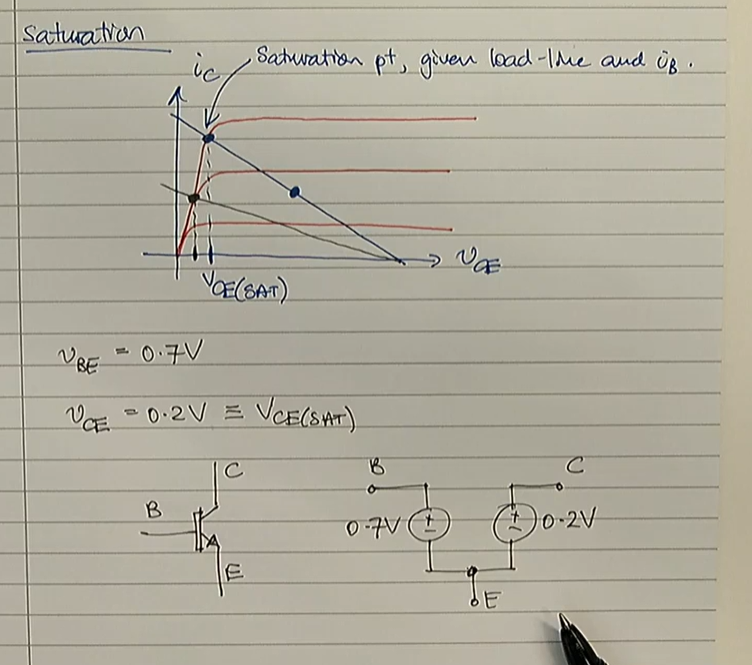 Saturation
i_C Saturation pt, given load-line and i_B.
v_CE
V_CE(SAT)
v_BE = 0.7V
v_CE = 0.2V ≡ V_CE(SAT)
C
B
E
B
C
0.7V
+
-
+
-
0.2V
E